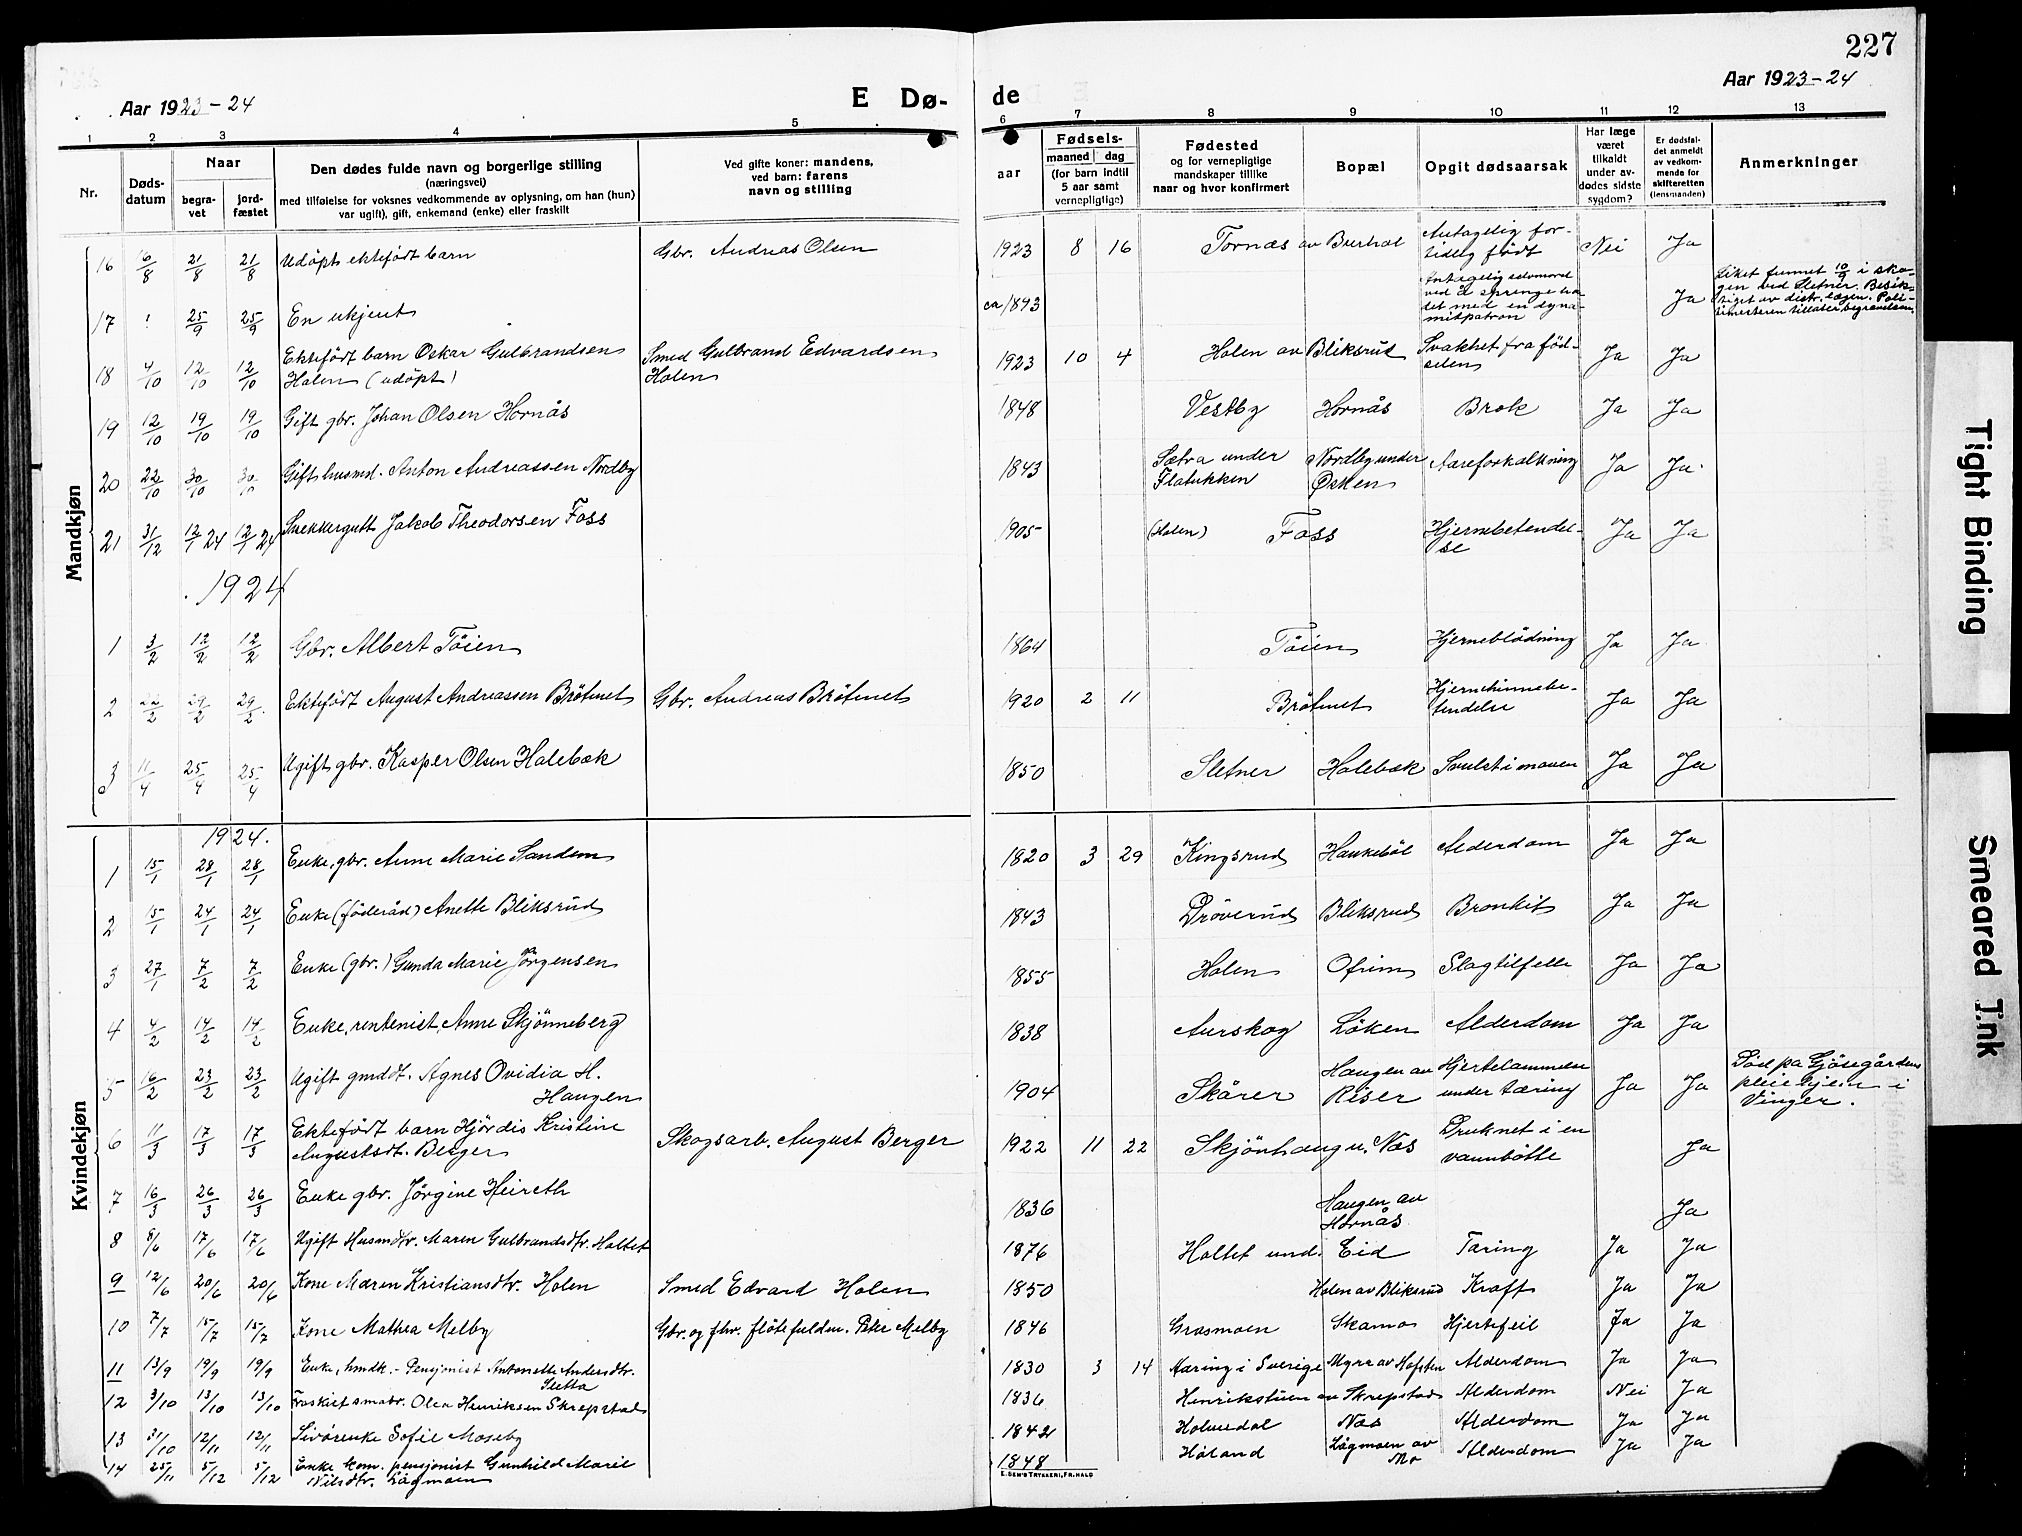 227
Aar 1923-24
E Dø-
de
Aar 1923-24
1 2 3 4 5 6 7 8 9 10 11 12 13
Nr.
Døds-
datum
Naar
begra-
vet
jord-
fæstet
Den dødes fulde navn og borgerlige stilling
(næringsvei)
med tilføielse for voksnes vedkommende av oplysning, om han (hun)
var ugift), gift, enkemand (enke) eller fraskilt
Ved gifte koner: mandens,
ved barn: farens
navn og stilling
Fødsels-
aar
maaned dag
(for barn indtil
5 aar samt
vernepligtige)
Fødested
og for vernepligtige
mandskaper tillike
naar og hvor konfirmert
Bopæl
Opgit dødsaarsak
Har læge
været
tilkaldt
under av-
dødes sidste
sygdom?
Er dødsfal-
det anmeldt
av vedkom-
mende for
skifteretten
(lensmanden)
Anmerkninger
Mandkjøn
16 16/8 21/8 21/8 Udöpt ektefödt barn Gbr. Andreas Olsen 1923 8 16 Tornæs av Burhol Antagelig for-
tidlig födt Nei Ja
17 ! 25/9 25/9 En ukjent ca 1843 Antagelig selvmord
ved å sprenge ho-
det med en dyna-
mitpatron Ja Liket funnet 10/9 i sko-
gen ved Sletner. Besik-
tiget av distr. lægen. Poli-
timesteren tillater begravelsen.
18 4/10 12/10 12/10 Ektefödt barn Oskar Gulbrandsen
Holen (udöpt) Smed Gulbrand Edvardsen
Holen 1923 10 4 Holen av Bliksrud Svakhet fra föd-
selen Ja Ja
19 12/10 19/10 19/10 Gift gbr. Johan Olsen Hornås 1848 Vestby Hornås Brok Ja Ja
20 22/10 30/10 30/10 Gift husmd. Anton Andreassen Nordby 1843 Sætra under
Flatukken Nordby under
Østlen Aareforkalkning Ja Ja
21 31/12 12/1 24 12/1 24 Snekkergutt Jakob Theodorsen Foss 1905 (Holen) Foss Hjernebetendel-
se Ja Ja
1924
1 3/2 12/2 12/2 Gbr. Albert Töien 1864 Töien Hjerneblödning Ja Ja
2 22/2 29/2 29/2 Ektefödt August Andreassen Bråtnet Gbr. Andreas Bråtnet 1920 2 11 Bråtnet Hjernehinnebe-
tendelse Ja Ja
3 11/4 25/4 25/4 Ugift gbr. Kasper Olsen Holebæk 1850 Sletner Holebæk Svulst i maven Ja Ja
Kvindekjøn
1924.
1 15/1 28/1 28/1 Enke, gbr. Anne Marie Sandem 1820 3 29 Kingsrud Haukeböl Alderdom Ja Ja
2 15/1 24/1 24/1 Enke (föderåd) Anette Bliksrud 1843 Dröverud Bliksrud Bronkit Ja Ja
3 27/1 7/2 7/2 Enke (gbr.) Gunda Marie Jörgensen 1855 Holen Ofrim Slagtilfelle Ja Ja
4 4/2 14/2 14/2 Enke, rentenist, Anne Skjönneberg 1838 Aurskog Löken Alderdom Ja Ja
5 16/2 23/2 23/2 Ugift gmddt. Agnes Ovidia H.
Haugen 1904 Skårer Haugen av
Riser Hjertelammelse
under tæring Ja Ja Död på Gjösegårdens
pleiehjem i
Vinger.
6 11/3 17/3 17/3 Ektefödt barn Hjördis Kristine
Augustsdt. Berger Skogsarb. August Berger 1922 11 22 Skjönhaug u. Næs Druknet i en
vannbötte Ja
7 16/3 26/3 26/3 Enke gbr. Jörgine Heireth 1836 Haugen av
Hornås Ja
8 8/6 17/6 17/6 Ugift Husmdtr. Maren Gulbrandsdtr. Holtet 1876 Holtet und. Eid Tæring Ja Ja
9 12/6 20/6 20/6 Kone Maren Kristiansdtr. Holen Smed Edvard Holen 1850 Holen av Bliksrud Kræft Ja Ja
10 7/7 15/7 15/7 Kone Mathea Melby Gbr. og fhv. flötefuldm. Peter Melby 1846 Græsmoen Skamo Hjertefeil Ja Ja
11 13/9 19/9 19/9 Enke, hmdk. - Pensjonist Antonette Andersdtr.
Sletta 1830 3 14 Kæring i Sverige Myra av Hofsten Alderdom Ja Ja
12 3/10 13/10 13/10 Fraskilt smabr. Olea Henriksen Skrepstad 1836 Henrikstuen av Skrepstad Alderdom Nei Ja
13 31/10 12/11 12/11 Livörenke Sofie Moseby 1842 Holmedal Næs Alderdom Ja Ja
14 25/11 5/12 5/12 Enke kom. pensjonist Gunhild Marie
Nilsdtr. Lågmoen 1848 Höland Lågmoen av
Mo Alderdom Ja Ja
E. SEM'S TRYKKERI, FR.HALD
Tight Binding
Smeared Ink